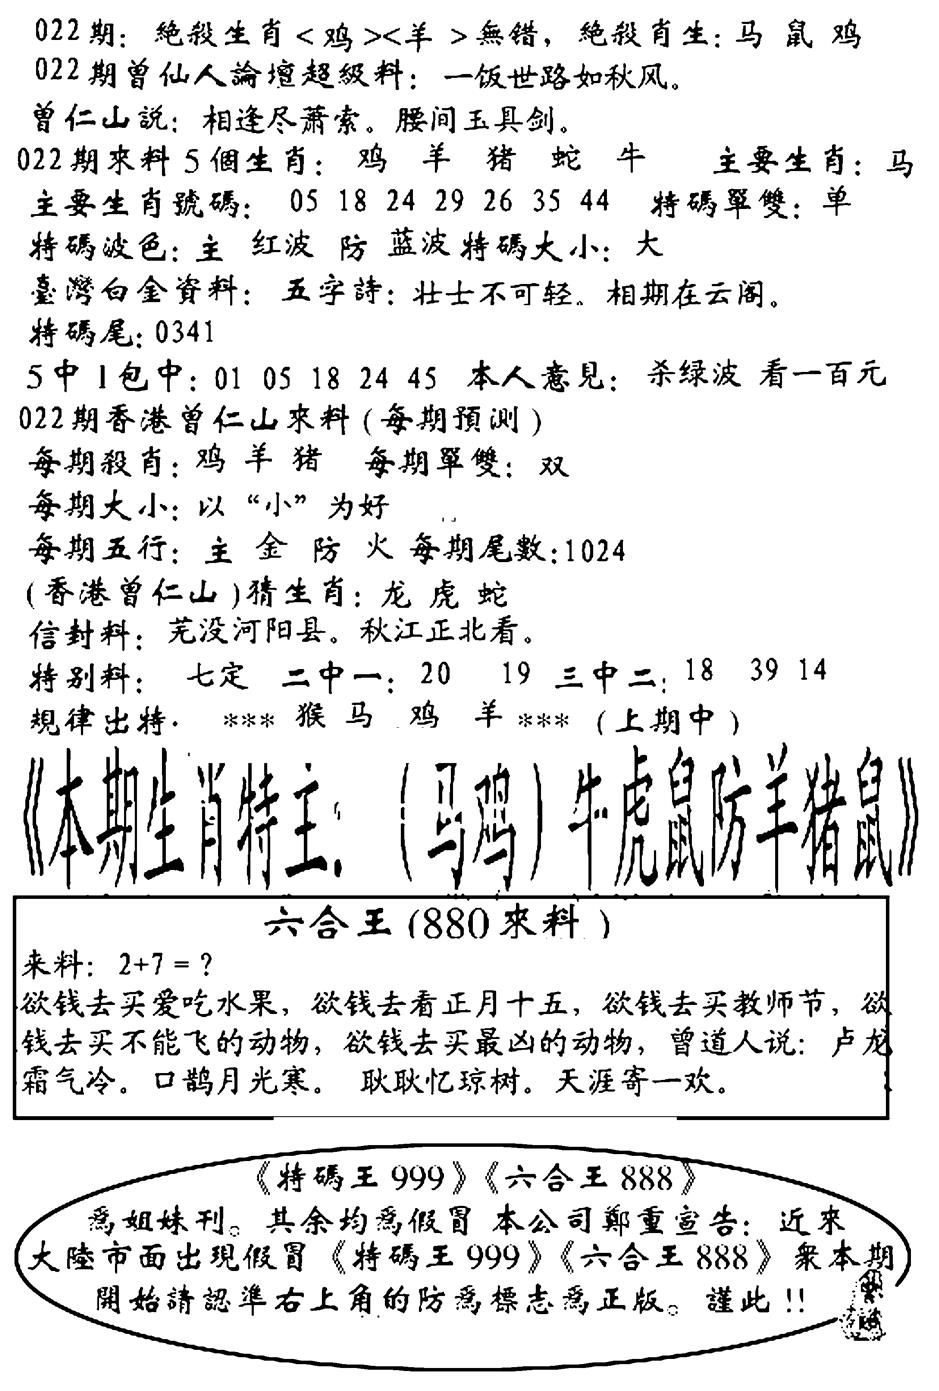 022期: 絶殺生肖<鸡><羊 >無错, 絶殺肖生: 马 鼠 鸡
022期曾仙人論壇超級料: 一饭世路如秋风。
曾仁山説: 相逢尽萧索。腰间玉具剑。
022期來料5個生肖: 鸡 羊 猪 蛇 牛 主要生肖: 马
主要生肖號碼: 05 18 24 29 26 35 44 特碼單雙: 单
特碼波色: 主 红波 防 蓝波 特碼大小: 大
臺灣白金資料: 五字詩: 壮士不可轻。相期在云阁。
特碼尾: 0341
5中1包中: 01 05 18 24 45 本人意見: 杀绿波 看一百元
022期香港曾仁山來料(每期預测)
每期殺肖: 鸡 羊 猪 每期單雙: 双
每期大小: 以“小”为好
每期五行: 主 金 防 火 每期尾數:1024
(香港曾仁山)猜生肖: 龙 虎 蛇
信封料: 芜没河阳县。秋江正北看。
特别料: 七定 二中一: 20 19 三中二: 18 39 14
規律出特· *** 猴 马 鸡 羊 *** (上期中)
《本期生肖特主: (马鸡)牛虎鼠防羊猪鼠》
六合王(880來料)
来料: 2+7=?
欲钱去买爱吃水果, 欲钱去看正月十五, 欲钱去买教师节, 欲
钱去买不能飞的动物, 欲钱去买最凶的动物, 曾道人说: 卢龙
霜气冷。口鹊月光寒。 耿耿忆琼树。天涯寄一欢。
《特碼王999》《六合王888》
為姐妹刊。其余均為假冒 本公司鄭重宣告: 近來
大陸市面出現假冒《特碼王999》《六合王888》衆本期
開始請認準右上角的防為標志為正版。謹此!!